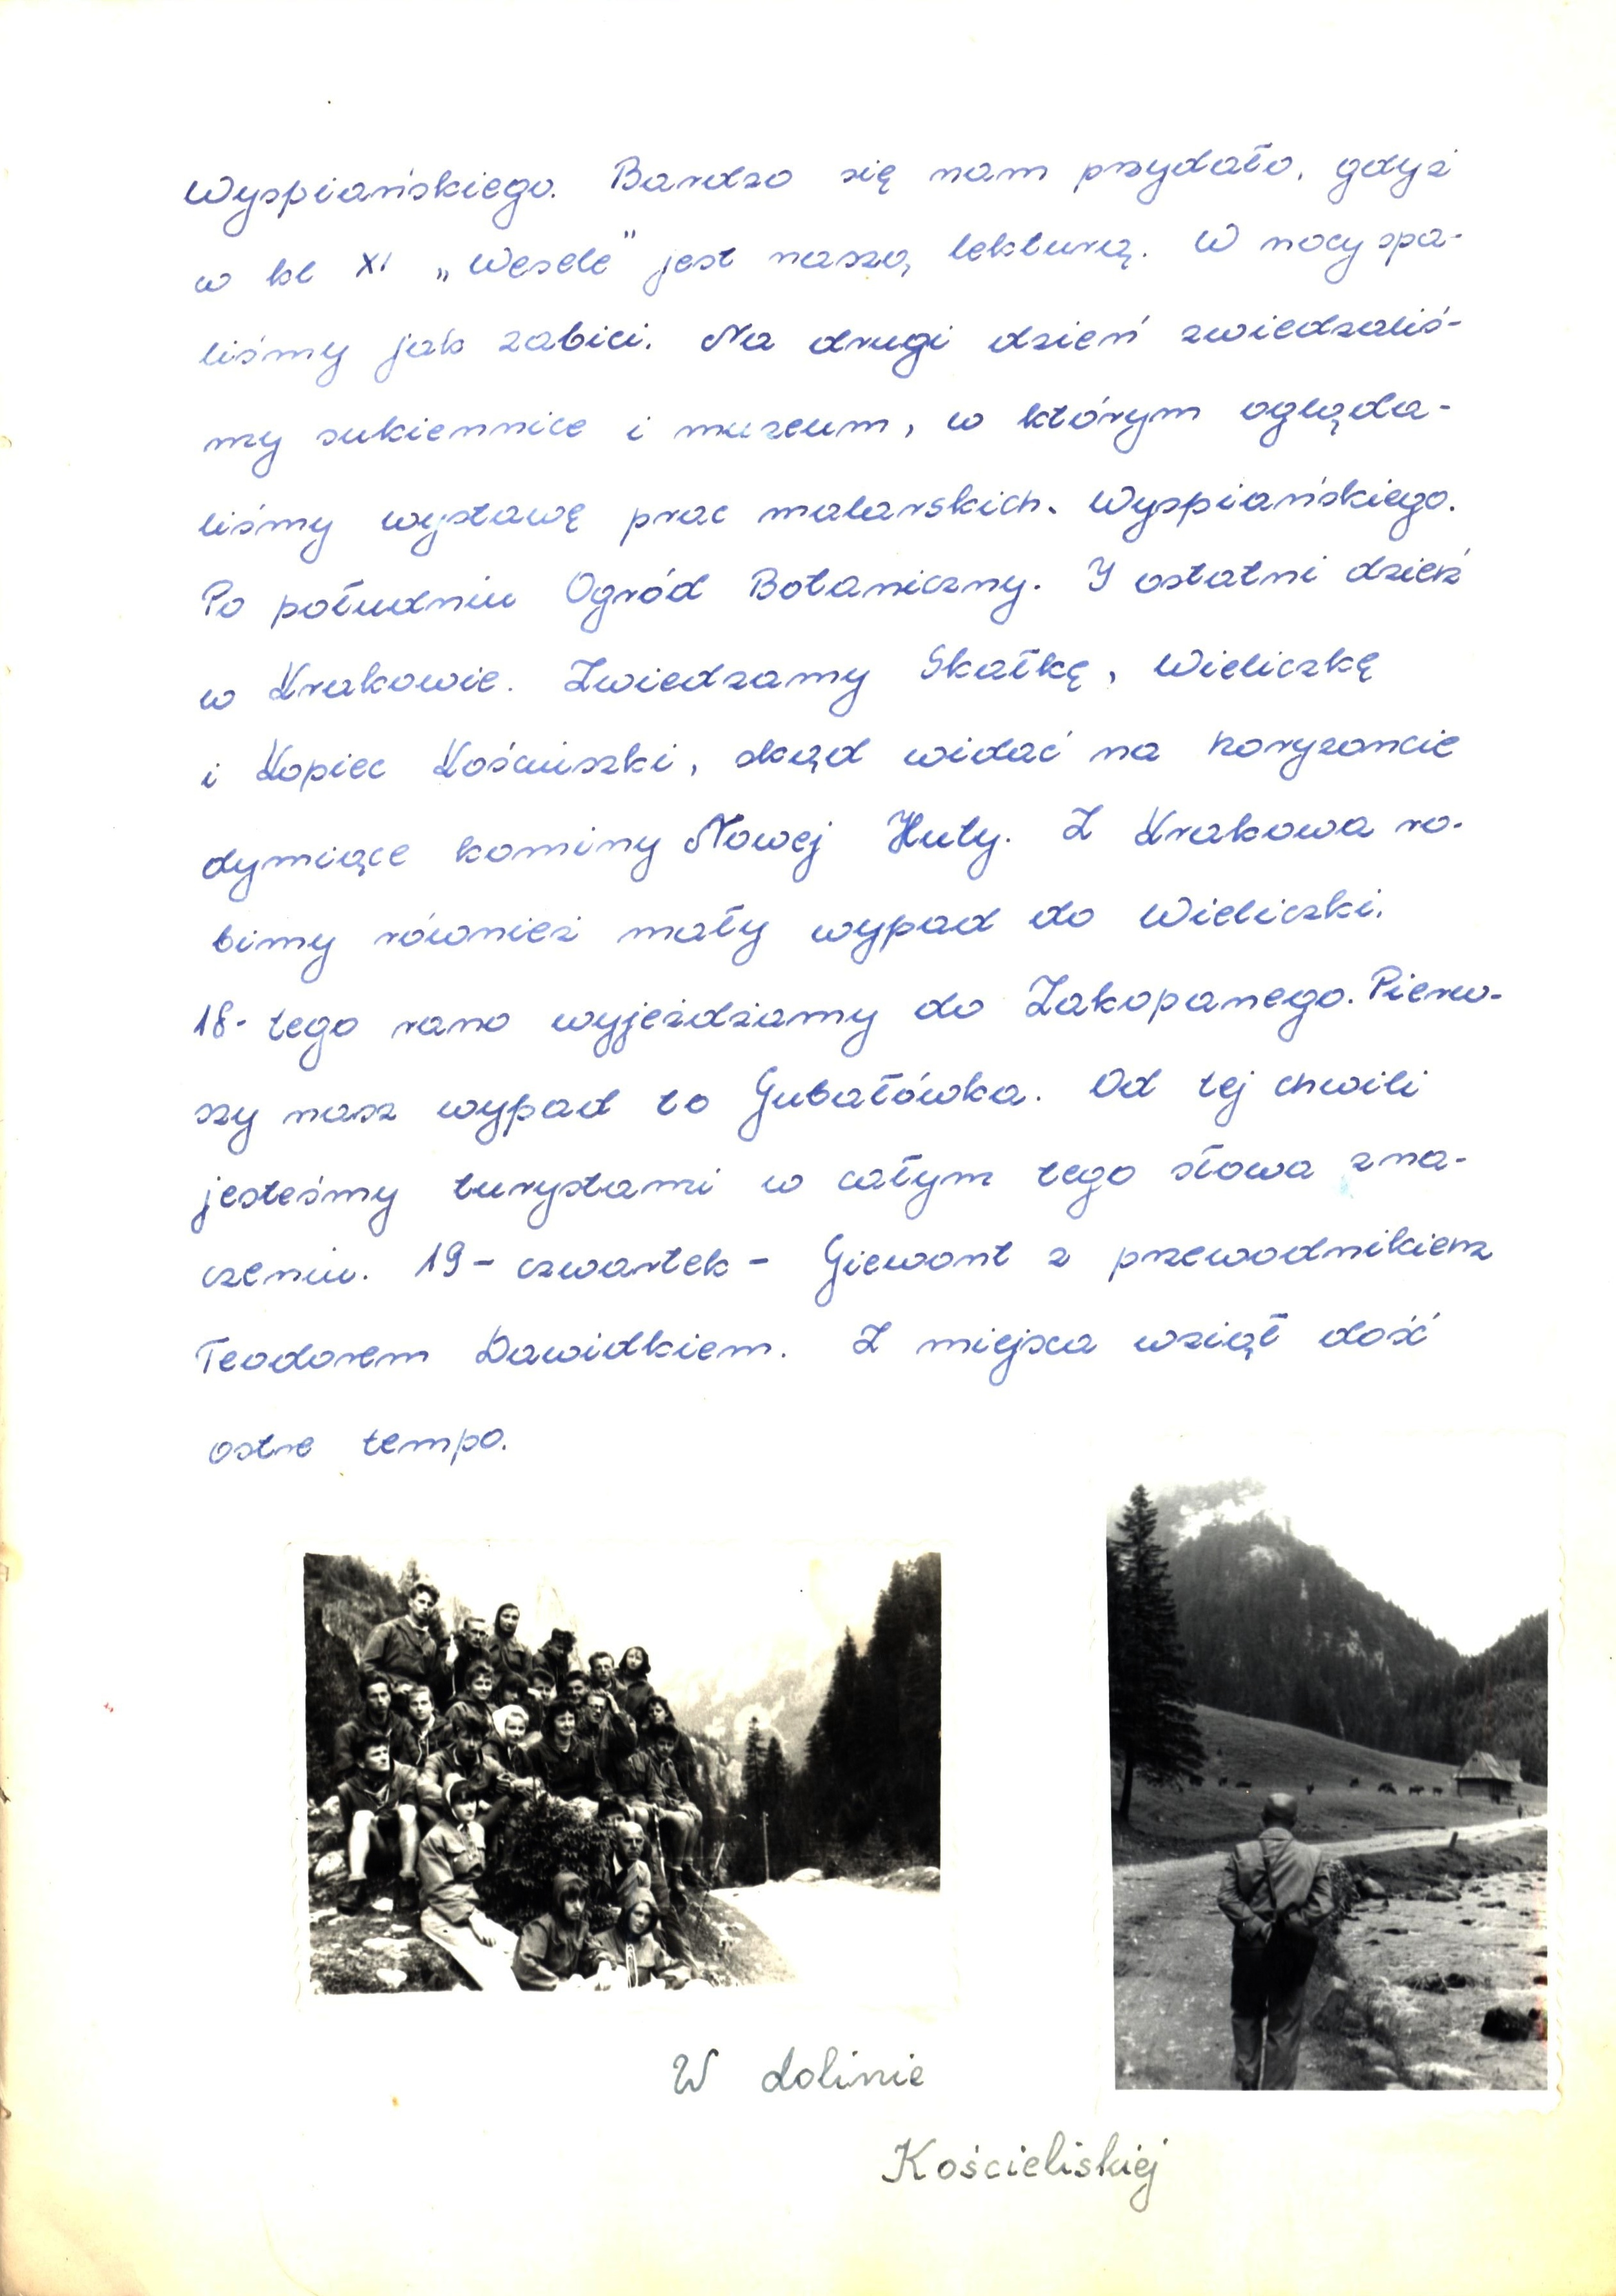 Wyspiańskiego. Bardzo się nam przydało, gdyż
w kl XI „Wesele” jest naszą lekturą. W nocy spa-
liśmy jak zabici. Na drugi dzień zwiedzaliś-
my sukiennice i muzeum, w którym ogląda-
liśmy wystawę prac malarskich. Wyspiańskiego.
Po południu Ogród Botaniczny. I ostatni dzień
w Krakowie. Zwiedzamy Skałkę, Wieliczkę
i Kopiec Kościuszki, skąd widać na horyzoncie
dymiące kominy Nowej Huty. Z Krakowa ro-
bimy również mały wypad do Wieliczki.
18-tego rano wyjeżdżamy do Zakopanego. Pierw-
szy nasz wypad to Gubałówka. Od tej chwili
jesteśmy turystami w całym tego słowa zna-
czeniu. 19 - czwartek - Giewont z przewodnikiem
Teodorem Dawidkiem. Z miejsca wziął dość
ostre tempo.
W dolinie
Kościeliskiej